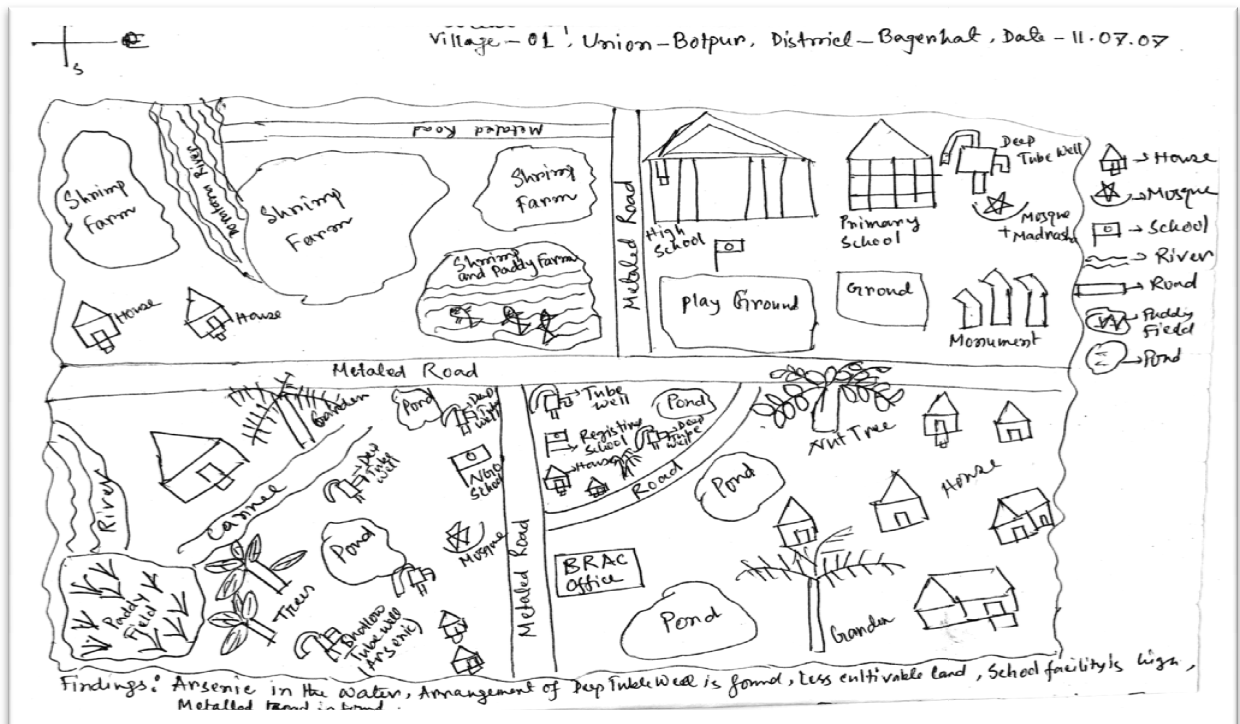 Village - 01, Union - Botpur, District - Bagerhat, Date - 11.07.07
S
Metaled Road
Shrimp
Farm
River
Shrimp
Farm
Shrimp
Farm
Shrimp
and Paddy Farm
House
House
Metaled Road
High
School
Primary
School
Deep
Tube Well
Mosque
+ Madrasha
Play Ground
Grond
Monument
→ House
→ Mosque
→ School
→ River
→ Road
→ Paddy
Field
→ Pond
Metaled Road
Garden
Pond
Deep
Tube
Well
River
Cannel
Deep
Tube
Well
NGO
School
Pond
Mosque
Paddy
Field
Trees
Shallow
Tube well
(Arsenic)
Metaled Road
→ Tube
Well
Pond
→ Registing
School
→ Deep
Tube
Well
→ House
Road
Nut Tree
Pond
House
BRAC
Office
Pond
Garden
Findings: Arsenic in the water, Arrangement of Deep Tube Well is found, Less cultivable land, School facility is high,
Metalled